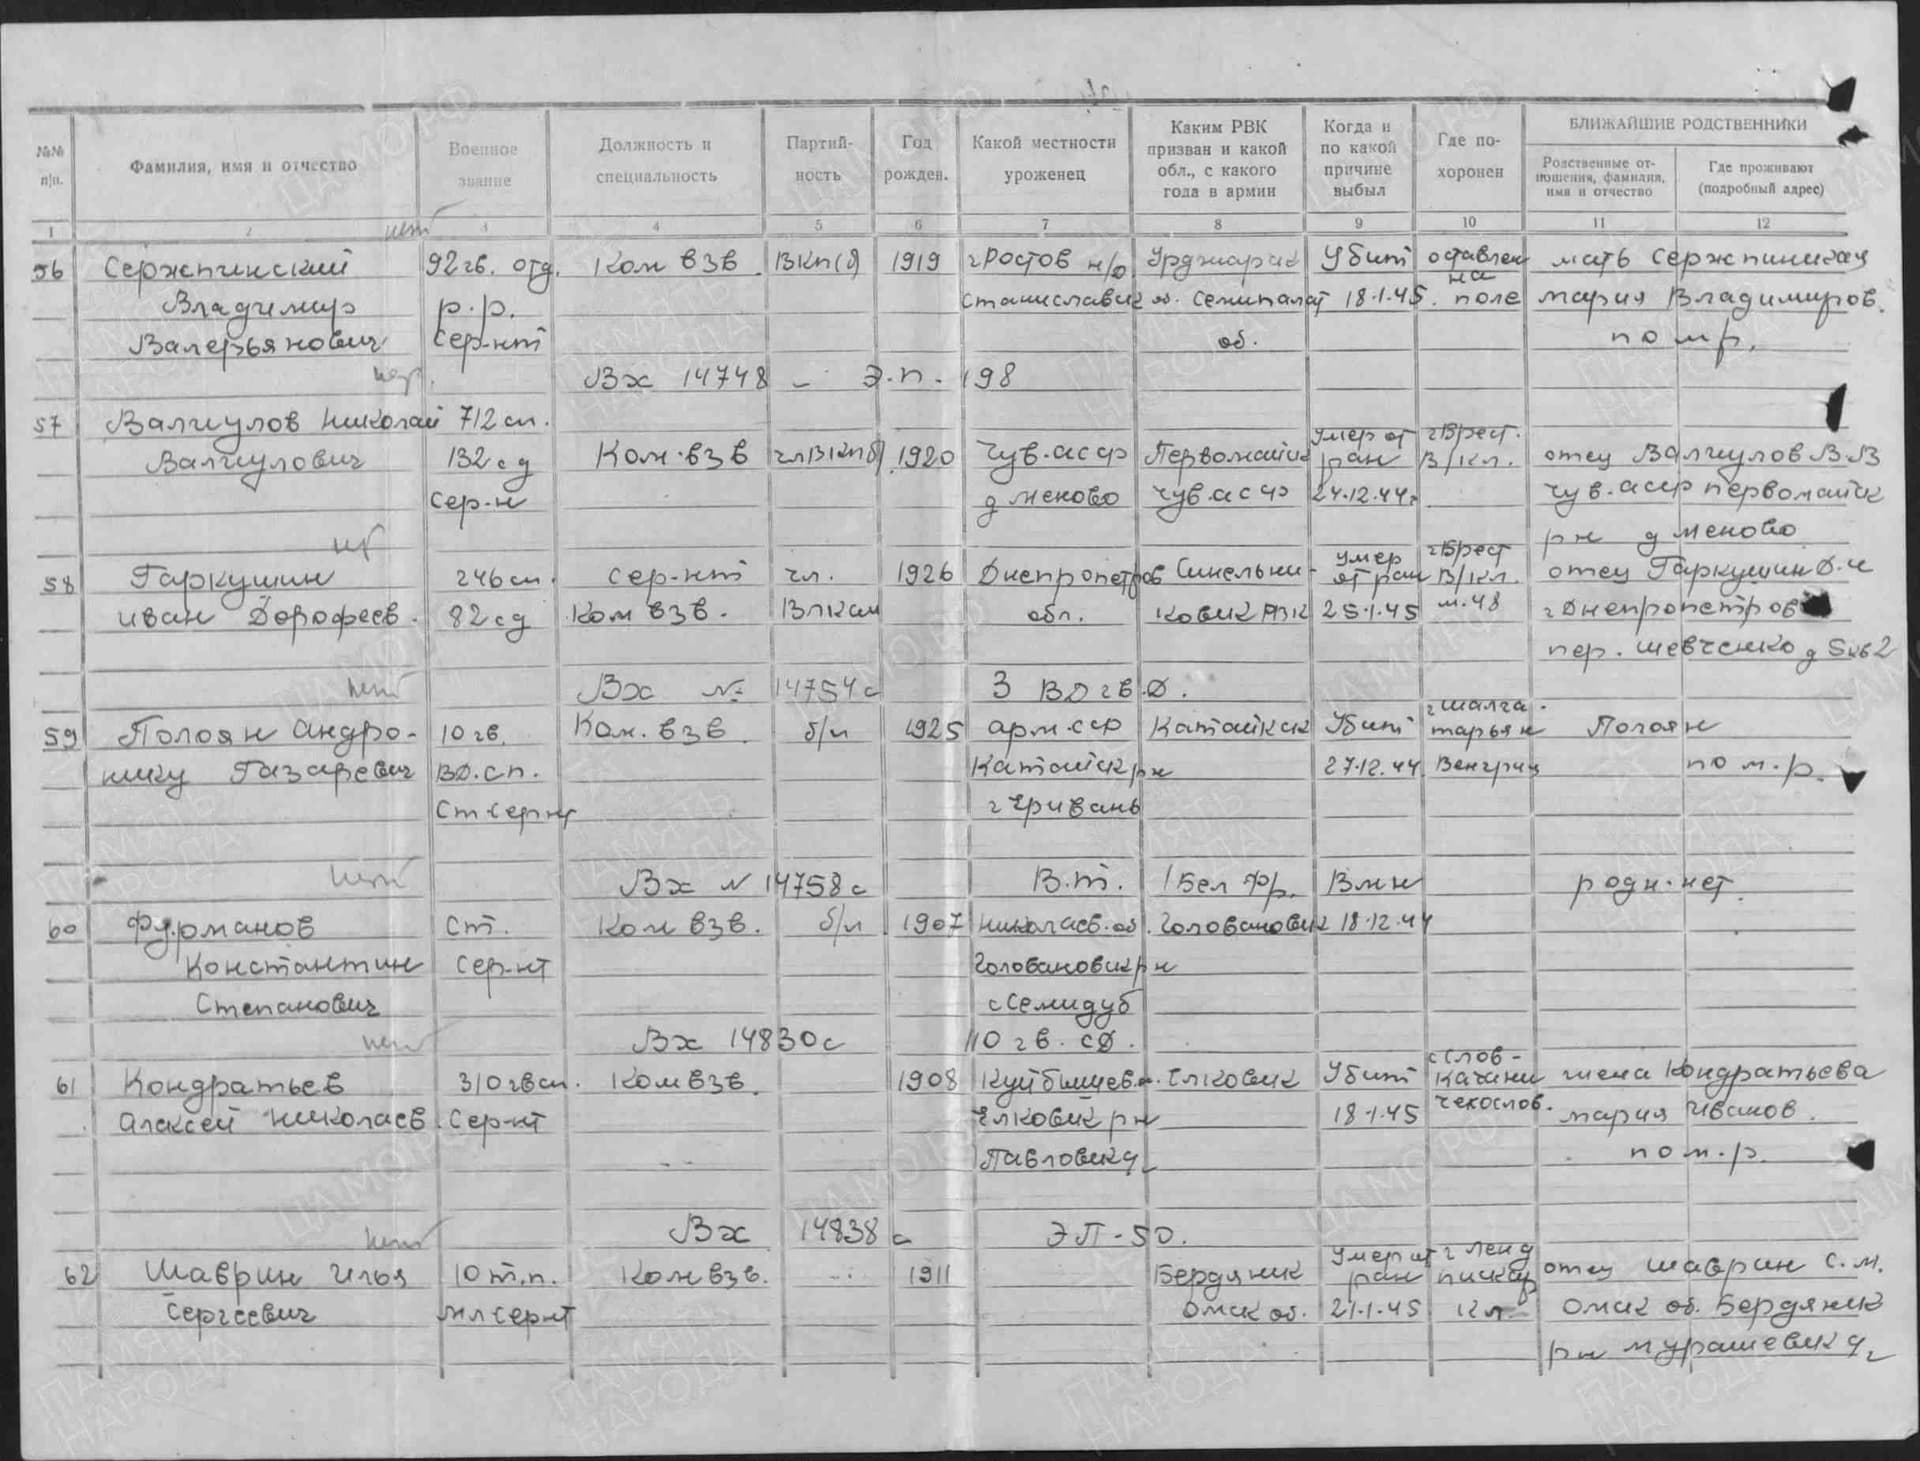 №№ п/п.
Фамилия, имя и отчество
Военное звание
Должность и специальность
Партий-ность
Год рожден.
Какой местности уроженец
Каким РВК призван и какой обл., с какого года в армии
Когда и по какой причине выбыл
Где по-хоронен
БЛИЖАЙШИЕ РОДСТВЕННИКИ
Родственные от-ношения, фамилия, имя и отчество
Где проживают (подробный адрес)
1 2 3 4 5 6 7 8 9 10 11 12
нет
56 Сержпинский 92 гв. отд. Ком взв. ВКП(б) 1919 г Ростов н/D Урджарск Убит оставлен мать Сержпинская
на
Владимир р.р. Станиславск об. Семипалат 18.1.45. поле мария Владимиров.
Валерьянович Сер-нт об. по м р.
Вх 14748 - Э.п. 198
57 Валгулов Николай 712 сп.
Умер от г Брест.
Валгулович 132 с д Ком. взв чл ВКПб 1920 Чув. асср Первомайск ран В/Кл. отец Валгулов В.В
сер-н д меково Чув. асср 24.12.44г чув. асср первомайск
рн д меково
Умер г Брест
58 Гаркушин 246 сп. сер-нт чл. 1926 Днепропетров Синельни- от ран В/Кл. отец Гаркушин Д.И
иван Дорофеев. 82 сд Ком взв. ВЛКСМ обл. ковск РВК 25.1.45 м.48 г Днепропетров
пер. шевченко д 5 кв 2
нет Вх № 14754 с 3 ВД гв. Д.
г шалга-
59 Полоян Андро- 10 гв. Ком. взв. б/п 1925 арм. сср Катайкск Убит тарьян Полоян
нику Газаревич ВД. сп. Катайск рн 27.12.44 Венгрия по м.р.
Ст сер-нт г Еривань
нет Вх № 14758 с В.т. 1 Бел фр. Вмн родн. нет.
60 Фурманов Ст. Ком взв. б/п 1907 Николаев. об. Головановск 18.12.44
Константин сер-нт Головановск рн
Степанович с Семидуб
нет Вх 14830 с 110 гв. сД.
с Слов-
61 Кондратьев 310 гв сп. Ком взв. 1908 Куйбышев. о. Елковск Убит качини жена Кондратьева
Алексей Николаев. Сер-нт Елковск рн 18.1.45 чехослов. мария Иванов.
Павловка по м.р.
нет Вх 14838 с ЭП-50.
Умер от г Ленд
62 Шаврин Илья 10 т.п. Ком взв. 1911 Бердяжск ран отец шаврин С.М.
Сергеевич мл сер-нт Омск об. 21.1.45 Кл. Омск об. Бердяжск
рн
ПАМЯТЬ НАРОДА
ЦАМО РФ